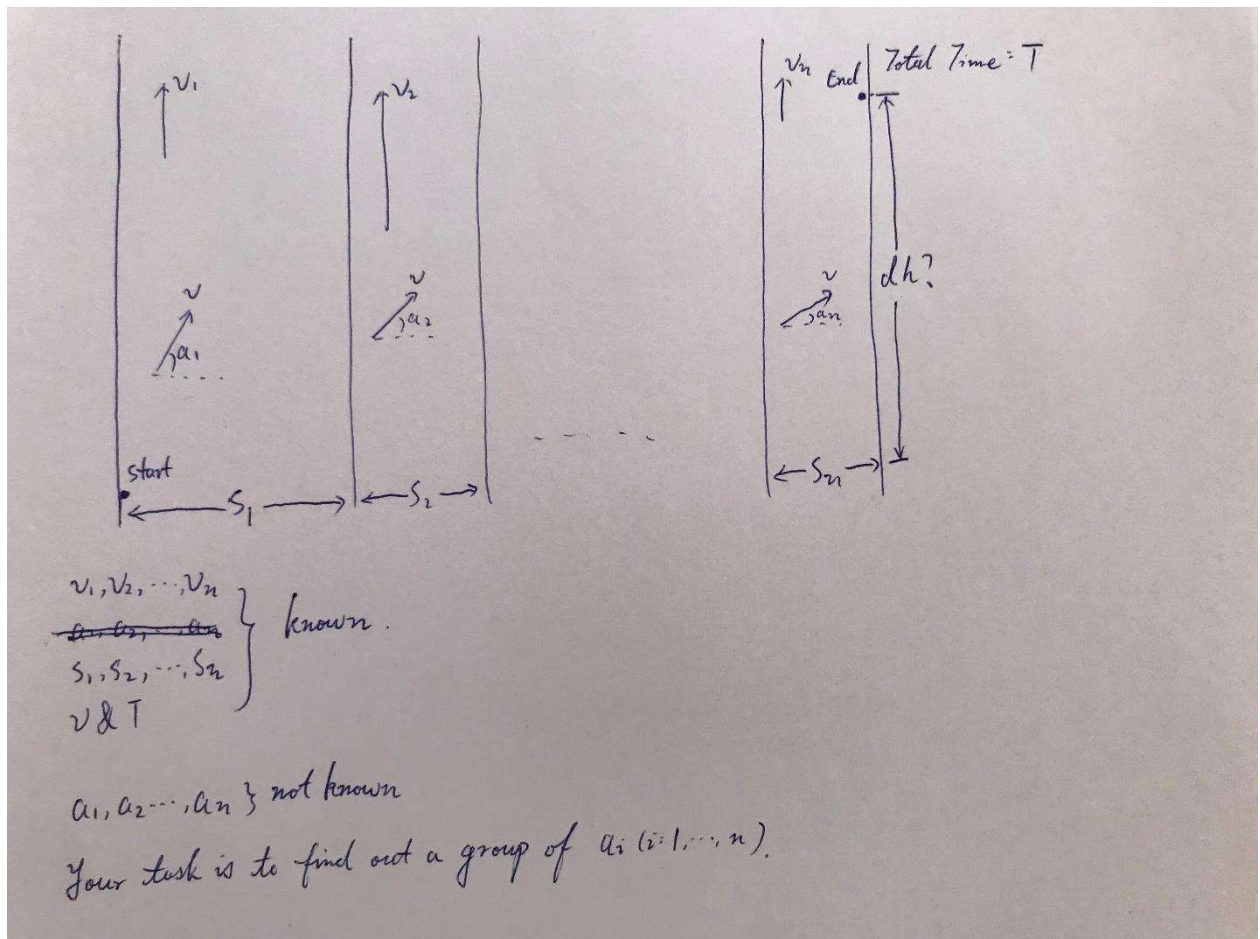 v₁
v₂
vₙ
End
Total Time = T
v
a₁
v
a₂
v
aₙ
dh?
start
S₁
S₂
Sₙ
v₁, v₂, ..., vₙ
a₁, a₂, ..., aₙ
s₁, s₂, ..., sₙ
v & T
} known.
a₁, a₂ ..., aₙ } not known
Your task is to find out a group of aᵢ (i=1, ..., n).